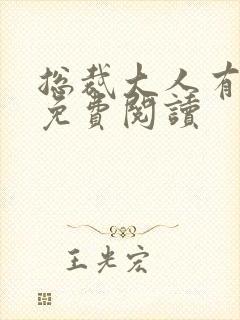 总裁大人有
免費閱讀
王光宏